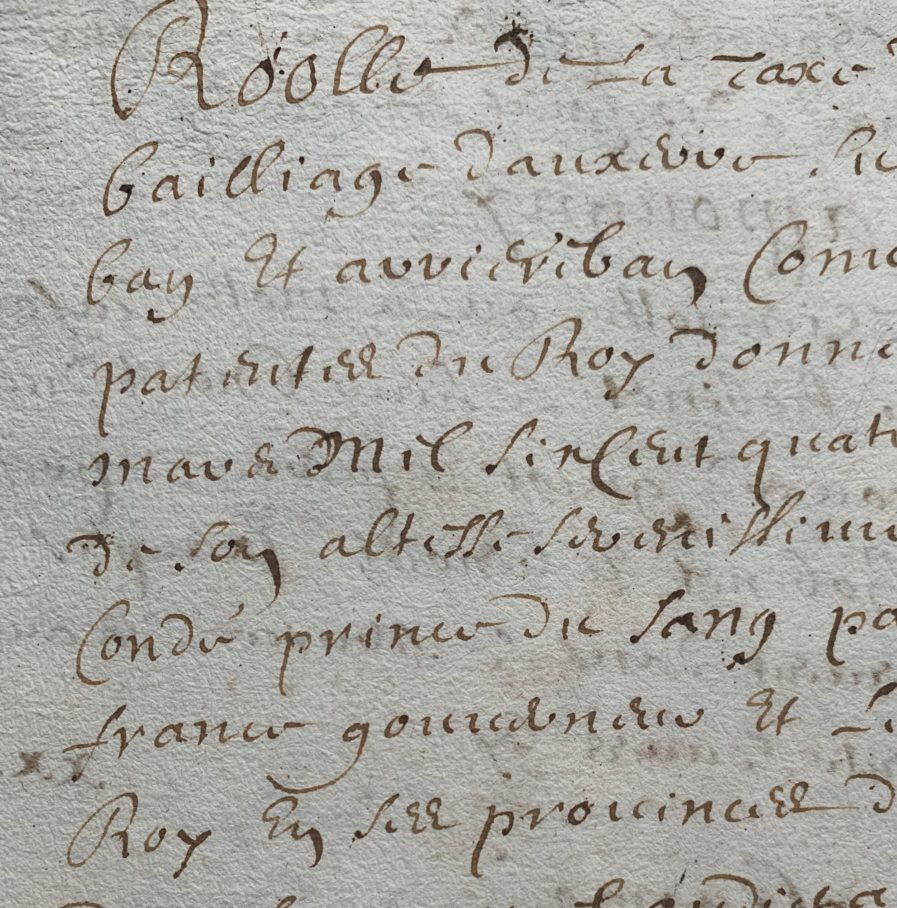 Roolle de La taxe
bailliage dauxerre
ban Et arriereban Com
patentes du Roy donne
mars Mil six Cent quat
de son altesse serenissime
Condé prince du sang pa
france gouverneur Et Li
Roy En ses provinces d